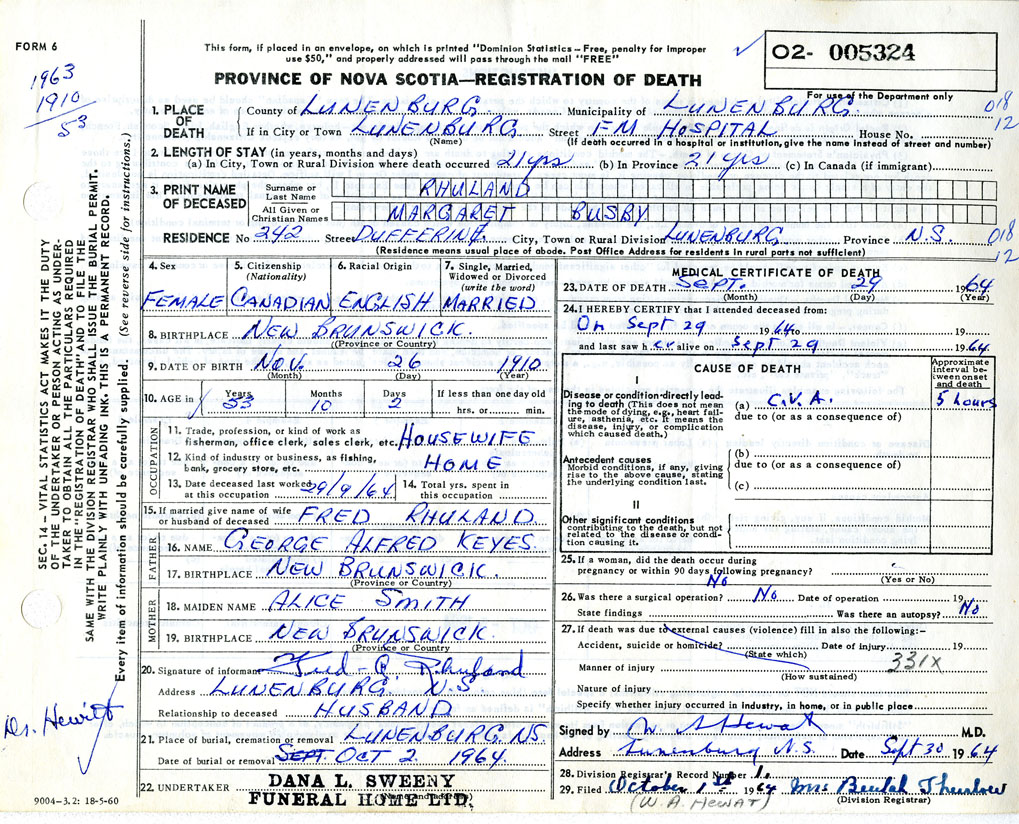 FORM 6
This form, if placed in an envelope, on which is printed "Dominion Statistics – Free, penalty for improper
use $50," and properly addressed will pass through the mail "FREE"
PROVINCE OF NOVA SCOTIA—REGISTRATION OF DEATH
02- 005324
For use of the Department only
1963
1910
53
018
12
1. PLACE OF DEATH County of LUNENBURG Municipality of LUNENBURG
If in City or Town LUNENBURG Street FM HOSPITAL House No.
(Name) (If death occurred in a hospital or institution, give the name instead of street and number)
2. LENGTH OF STAY (in years, months and days)
(a) In City, Town or Rural Division where death occurred 21 yrs (b) In Province 21 yrs (c) In Canada (if immigrant)
3. PRINT NAME OF DECEASED
Surname or Last Name RHULAND
All Given or Christian Names MARGARET BUSBY
RESIDENCE No 242 Street DUFFERIN City, Town or Rural Division LUNENBURG Province N.S. 018
12
(Residence means usual place of abode. Post Office Address for residents in rural parts not sufficient)
4. Sex FEMALE
5. Citizenship (Nationality) CANADIAN
6. Racial Origin ENGLISH
7. Single, Married, Widowed or Divorced (write the word) MARRIED
8. BIRTHPLACE NEW BRUNSWICK
(Province or Country)
9. DATE OF BIRTH NOV. 26 1910
(Month) (Day) (Year)
10. AGE in Years 53 Months 10 Days 2 If less than one day old hrs. or min.
OCCUPATION
11. Trade, profession, or kind of work as
fisherman, office clerk, sales clerk, etc. HOUSEWIFE
12. Kind of industry or business, as fishing,
bank, grocery store, etc. HOME
13. Date deceased last worked
at this occupation 29/9/64
14. Total yrs. spent in
this occupation
15. If married give name of wife
or husband of deceased FRED RHULAND
FATHER
16. NAME GEORGE ALFRED KEYES
17. BIRTHPLACE NEW BRUNSWICK.
(Province or Country)
MOTHER
18. MAIDEN NAME ALICE SMITH
19. BIRTHPLACE NEW BRUNSWICK
Province or Country
20. Signature of informant Fred Rhuland
Address LUNENBURG N.S.
Relationship to deceased HUSBAND
21. Place of burial, cremation or removal LUNENBURG, NS.
Date of burial or removal SEPT OCT 2 1964
22. UNDERTAKER DANA L. SWEENY
FUNERAL HOME LTD.
9004-3.2: 18-5-60
MEDICAL CERTIFICATE OF DEATH
23. DATE OF DEATH SEPT. 29 1964
(Month) (Day) (Year)
24. I HEREBY CERTIFY that I attended deceased from:
On Sept 29 1964 19
and last saw her alive on Sept 29 1964
CAUSE OF DEATH
Approximate interval between onset and death
I
Disease or condition directly leading to death (This does not mean the mode of dying, e.g., heart failure, asthenia, etc. It means the disease, injury, or complication which caused death.)
(a) C.V.A. 5 hours
due to (or as a consequence of)
Antecedent causes
Morbid conditions, if any, giving rise to the above cause, stating the underlying condition last.
(b)
due to (or as a consequence of)
(c)
II
Other significant conditions
contributing to the death, but not related to the disease or condition causing it.
25. If a woman, did the death occur during
pregnancy or within 90 days following pregnancy? No (Yes or No)
26. Was there a surgical operation? No Date of operation 19
State findings Was there an autopsy? No
27. If death was due to external causes (violence) fill in also the following:–
Accident, suicide or homicide? Date of injury 19
(State which)
331X
Manner of injury
(How sustained)
Nature of injury
Specify whether injury occurred in industry, in home, or in public place
Signed by W A Hewat M.D.
Address Lunenburg N.S. Date Sept 30 1964
28. Division Registrar's Record Number 1.
29. Filed October 1st 1964 Mrs Beulah
(Division Registrar)
(W.A. HEWAT)
SEC. 14 VITAL STATISTICS ACT MAKES IT THE DUTY
OF THE UNDERTAKER OR PERSON ACTING AS UNDER-
TAKER TO OBTAIN ALL THE PARTICULARS REQUIRED
IN THE "REGISTRATION OF DEATH" AND TO FILE THE
SAME WITH THE DIVISION REGISTRAR WHO SHALL ISSUE THE BURIAL PERMIT.
WRITE PLAINLY WITH UNFADING INK. THIS IS A PERMANENT RECORD.
Every item of information should be carefully supplied. (See reverse side for instructions.)
Dr. Hewitt